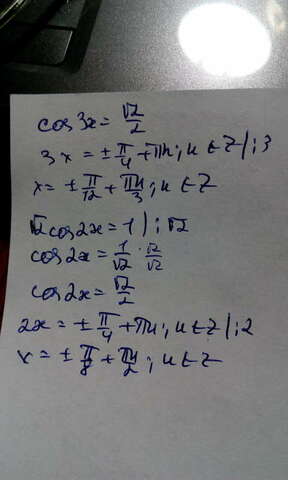 cos3x = √2/2
3x = ± π/4 + πn; n ∈ Z |:3
x = ± π/12 + πn/3; n ∈ Z
√2 cos2x = 1 | : √2
cos2x = 1/√2 · √2/√2
cos2x = √2/2
2x = ± π/4 + πn; n ∈ Z |:2
x = ± π/8 + πn/2; n ∈ Z